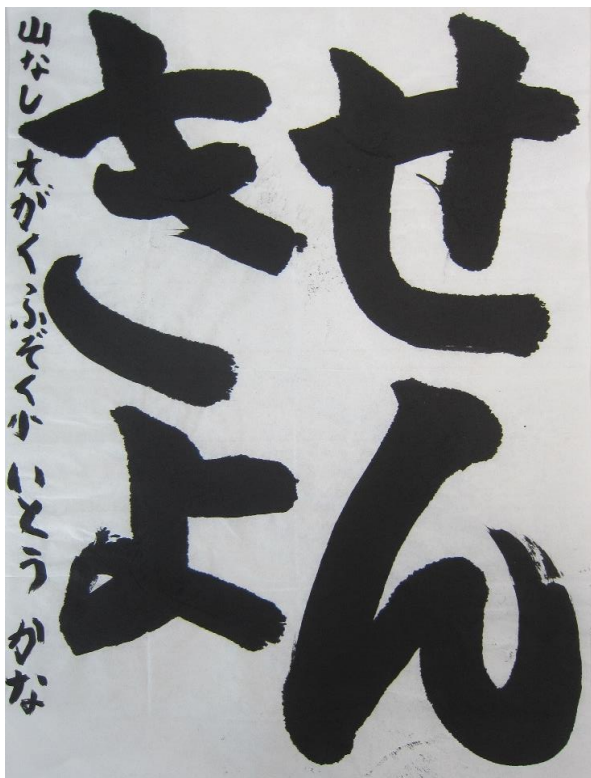 せん
きょ
山なし大がくふぞく小 いとう かな